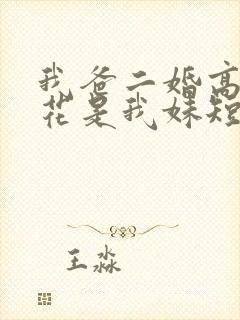 我爸二婚高
花是我妹短
王淼